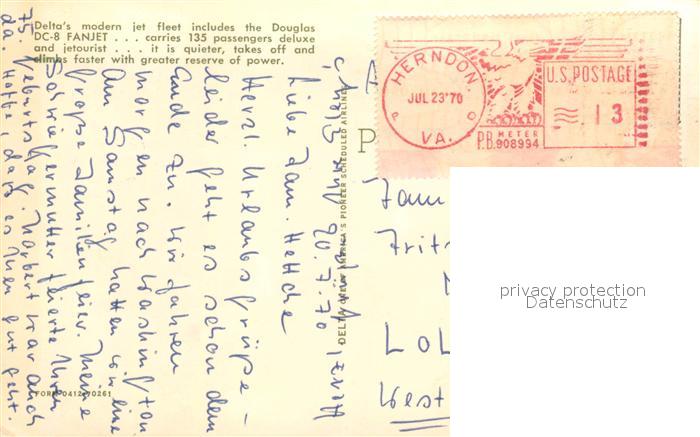 Delta's modern jet fleet includes the Douglas
DC-8 FANJET . . . carries 135 passengers deluxe
and jetourist . . . it is quieter, takes off and
climbs faster with greater reserve of power.
HERNDON,
JUL 23'70
P O
VA.
U.S. POSTAGE
13
P.B. METER
908994
20.7.70
Liebe Fam. Hettche
Herzl. Urlaubsgrüße -
leider geht es schon dem
Ende zu. Wir fahren
morgen nach Washington
Am Samstag hatten wir eine
große Familienfeier. Meine
Schwiegermutter feierte Ihren
75. Geburtstag. Norbert war auch
da. Hoffe, daß es Ihnen gut geht.
DELTA AMERICA'S PIONEER SCHEDULED AIRLINE
FORM 0412-70261
Fam
Frit
LOL
West
privacy protection
Datenschutz